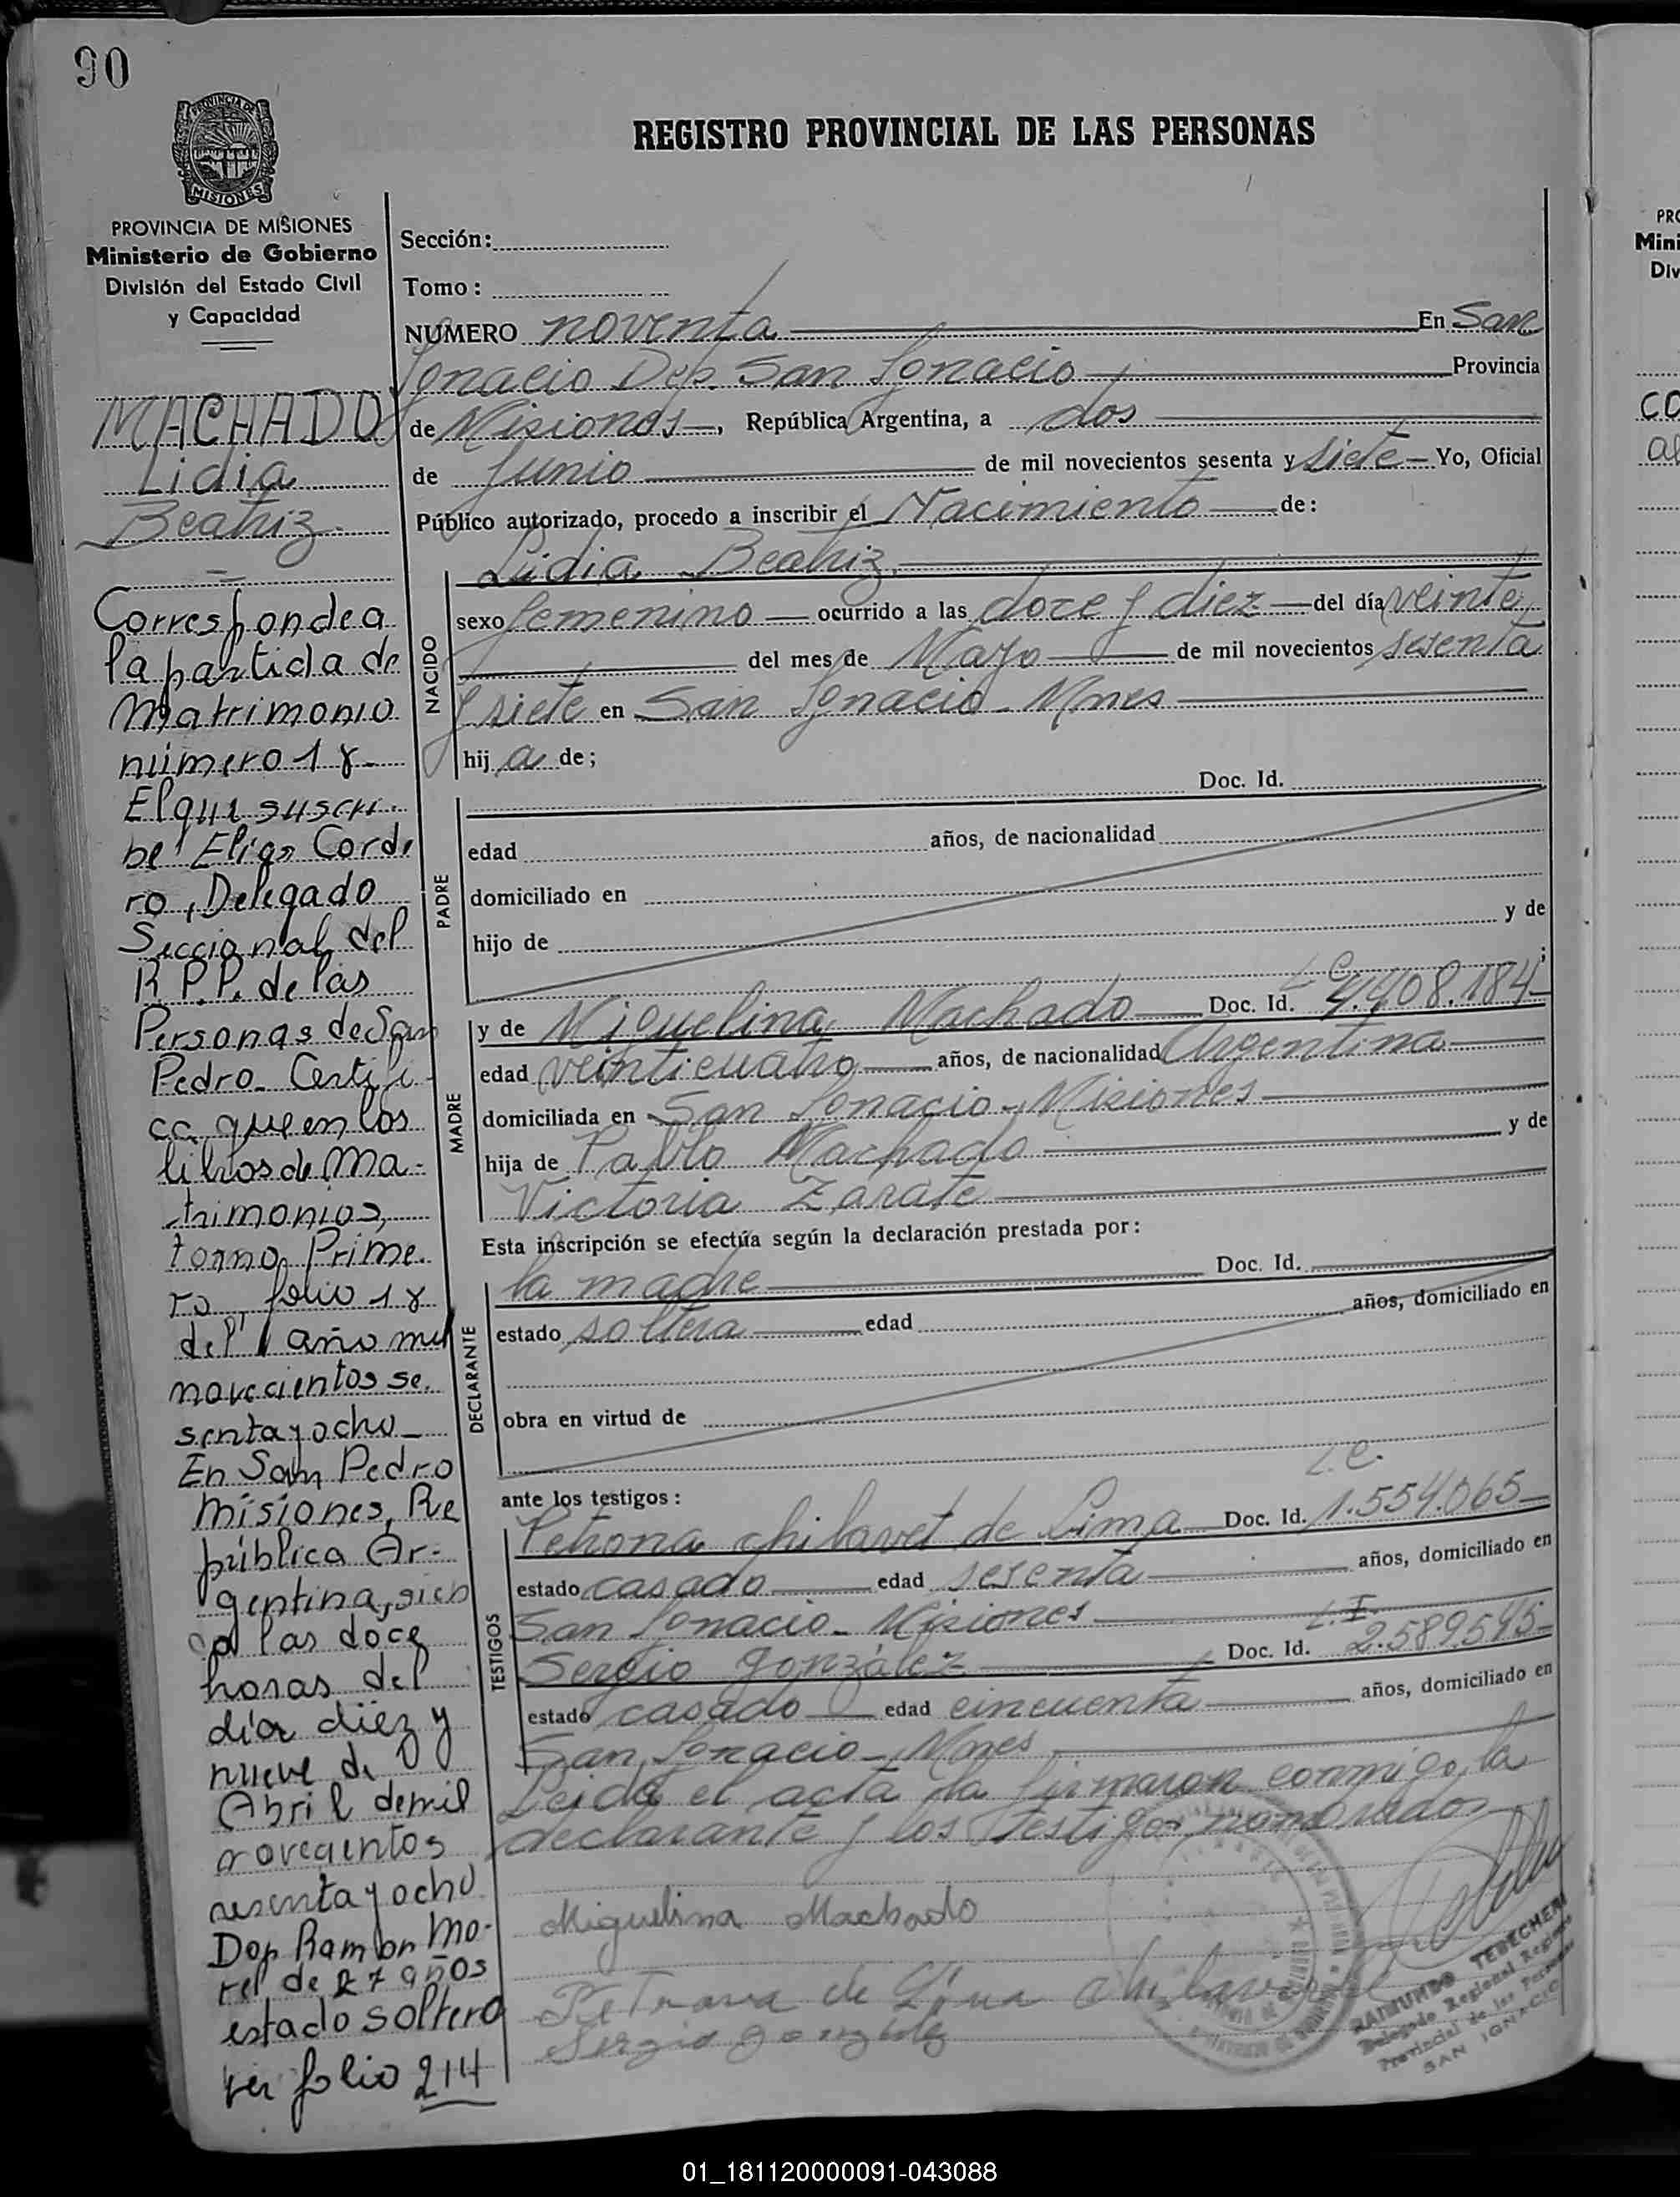 90
PROVINCIA DE
MISIONES
PROVINCIA DE MISIONES
Ministerio de Gobierno
División del Estado Civil
y Capacidad
MACHADO
Lidia
Beatriz.
Corresponde a
la partida de
Matrimonio
número 18-
El que suscri-
be Elias Corde
ro, Delegado
Seccional del
R.P.P. de las
Personas de San
Pedro- Certifi-
ca, que en los
libros de Ma-
trimonios,
tomo Prime-
ro, folio 18
del año mil
novecientos se-
senta y ocho-
En San Pedro
Misiones, Re
pública Ar-
gentina, sien
a las doce
horas del
día diez y
nueve de
Abril de mil
novecientos
sesenta y ocho
Don Ramon Mo-
rel de 27 años
estado soltero
ver folio 214
REGISTRO PROVINCIAL DE LAS PERSONAS
Sección:
Tomo:
NUMERO noventa En San
Ignacio Dep. San Ignacio Provincia
de Misiones-, República Argentina, a dos
de Junio de mil novecientos sesenta y siete- Yo, Oficial
Público autorizado, procedo a inscribir el Nacimiento de:
Lidia Beatriz.
NACIDO
sexo femenino ocurrido a las doce y diez del día veinte
del mes de Mayo de mil novecientos sesenta
y siete en San Ignacio- Mnes
hij a de;
PADRE
Doc. Id.
edad años, de nacionalidad
domiciliado en
hijo de y de
MADRE
L C
y de Miguelina Machado Doc. Id. 4.408.184-
edad veinticuatro años, de nacionalidad Argentina
domiciliada en San Ignacio- Misiones
hija de Pablo Machado y de
Victoria Zárate
Esta inscripción se efectúa según la declaración prestada por:
DECLARANTE
la madre Doc. Id.
estado soltera edad años, domiciliado en
obra en virtud de
ante los testigos:
TESTIGOS
L.C.
Petrona chilavet de Lima Doc. Id. 1.554.065-
estado casado edad sesenta años, domiciliado en
San Ignacio- Misiones
L.I.
Sergio González Doc. Id. 2.589.545-
estado casado edad cincuenta años, domiciliado en
San Ignacio- Mnes
Leida el acta la firmaron conmigo, la
declarante y los testigos nombrados
Miguelina Machado
Petrona de Lima chilavert
Sergio gonzalez
RAIMUNDO TEBECHERI
Delegado Regional Registro
Provincial de las Personas
SAN IGNACIO
PRO
Mini
Div
CO
al
01_181120000091-043088